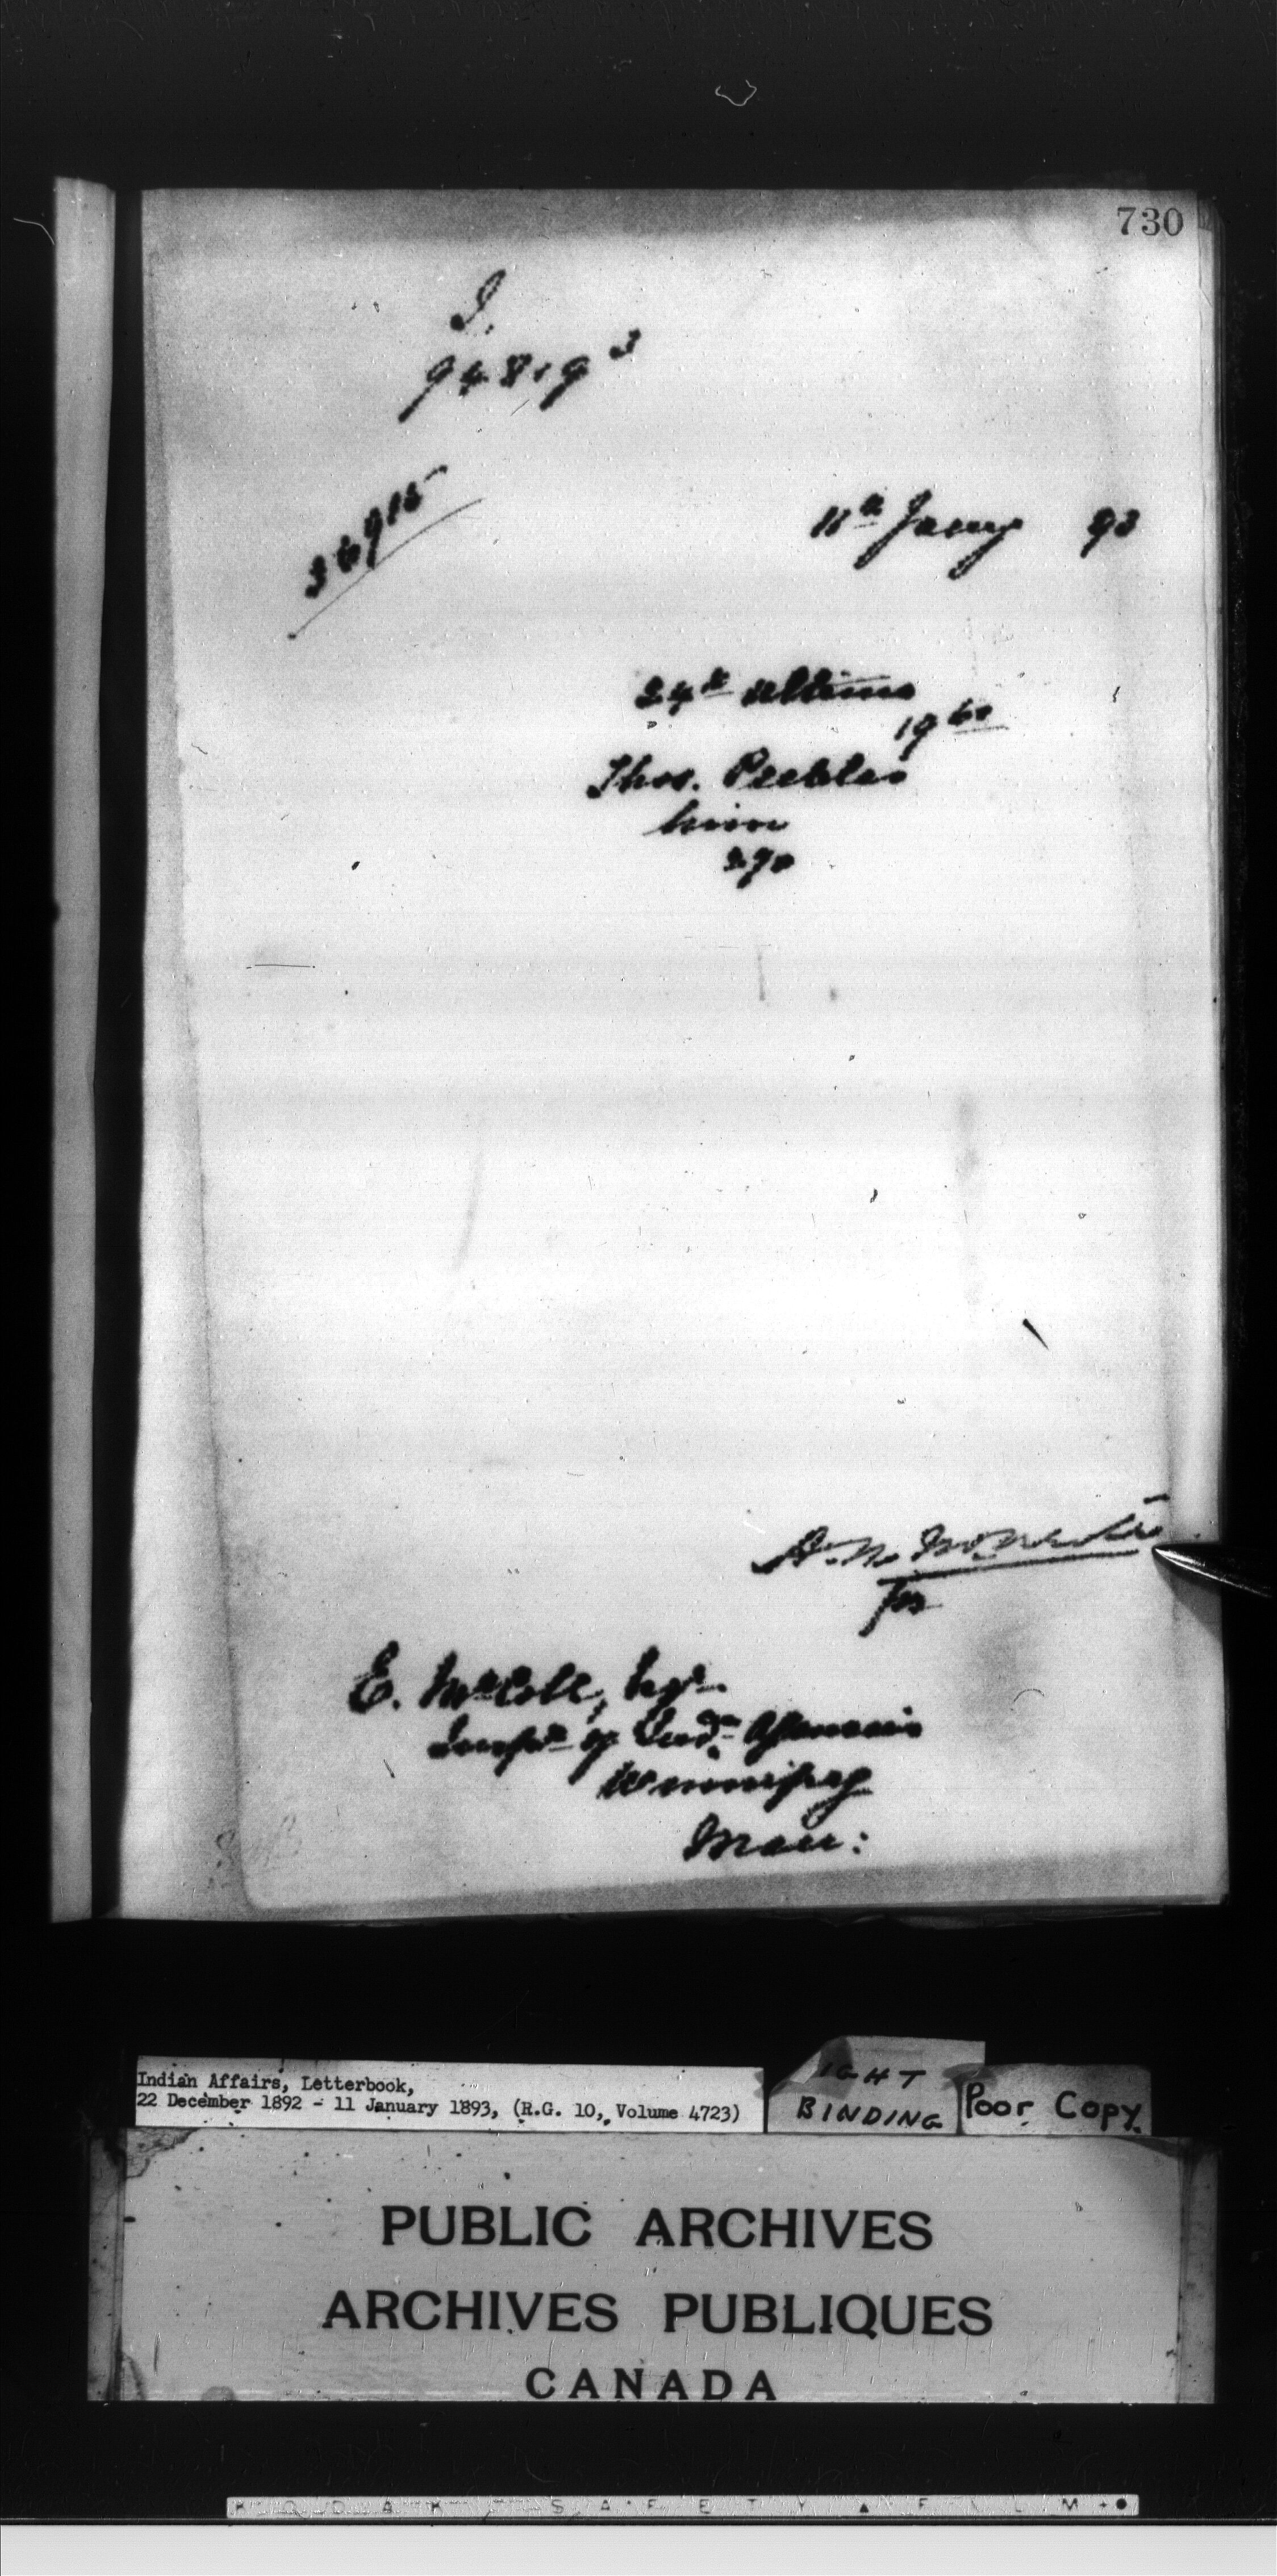 730
I.
94819 3
36915
11th Jany 93
24th ultimo
19 60
Thos. Peebles
him
290
for
E. McColl, Esqr.
Inspr. of Indn. Agencies
Winnipeg
Man:
Indian Affairs, Letterbook,
22 December 1892 - 11 January 1893, (R.G. 10, Volume 4723)
IGHT
BINDING
Poor Copy.
PUBLIC ARCHIVES
ARCHIVES PUBLIQUES
CANADA
KODAK SAFETY FILM